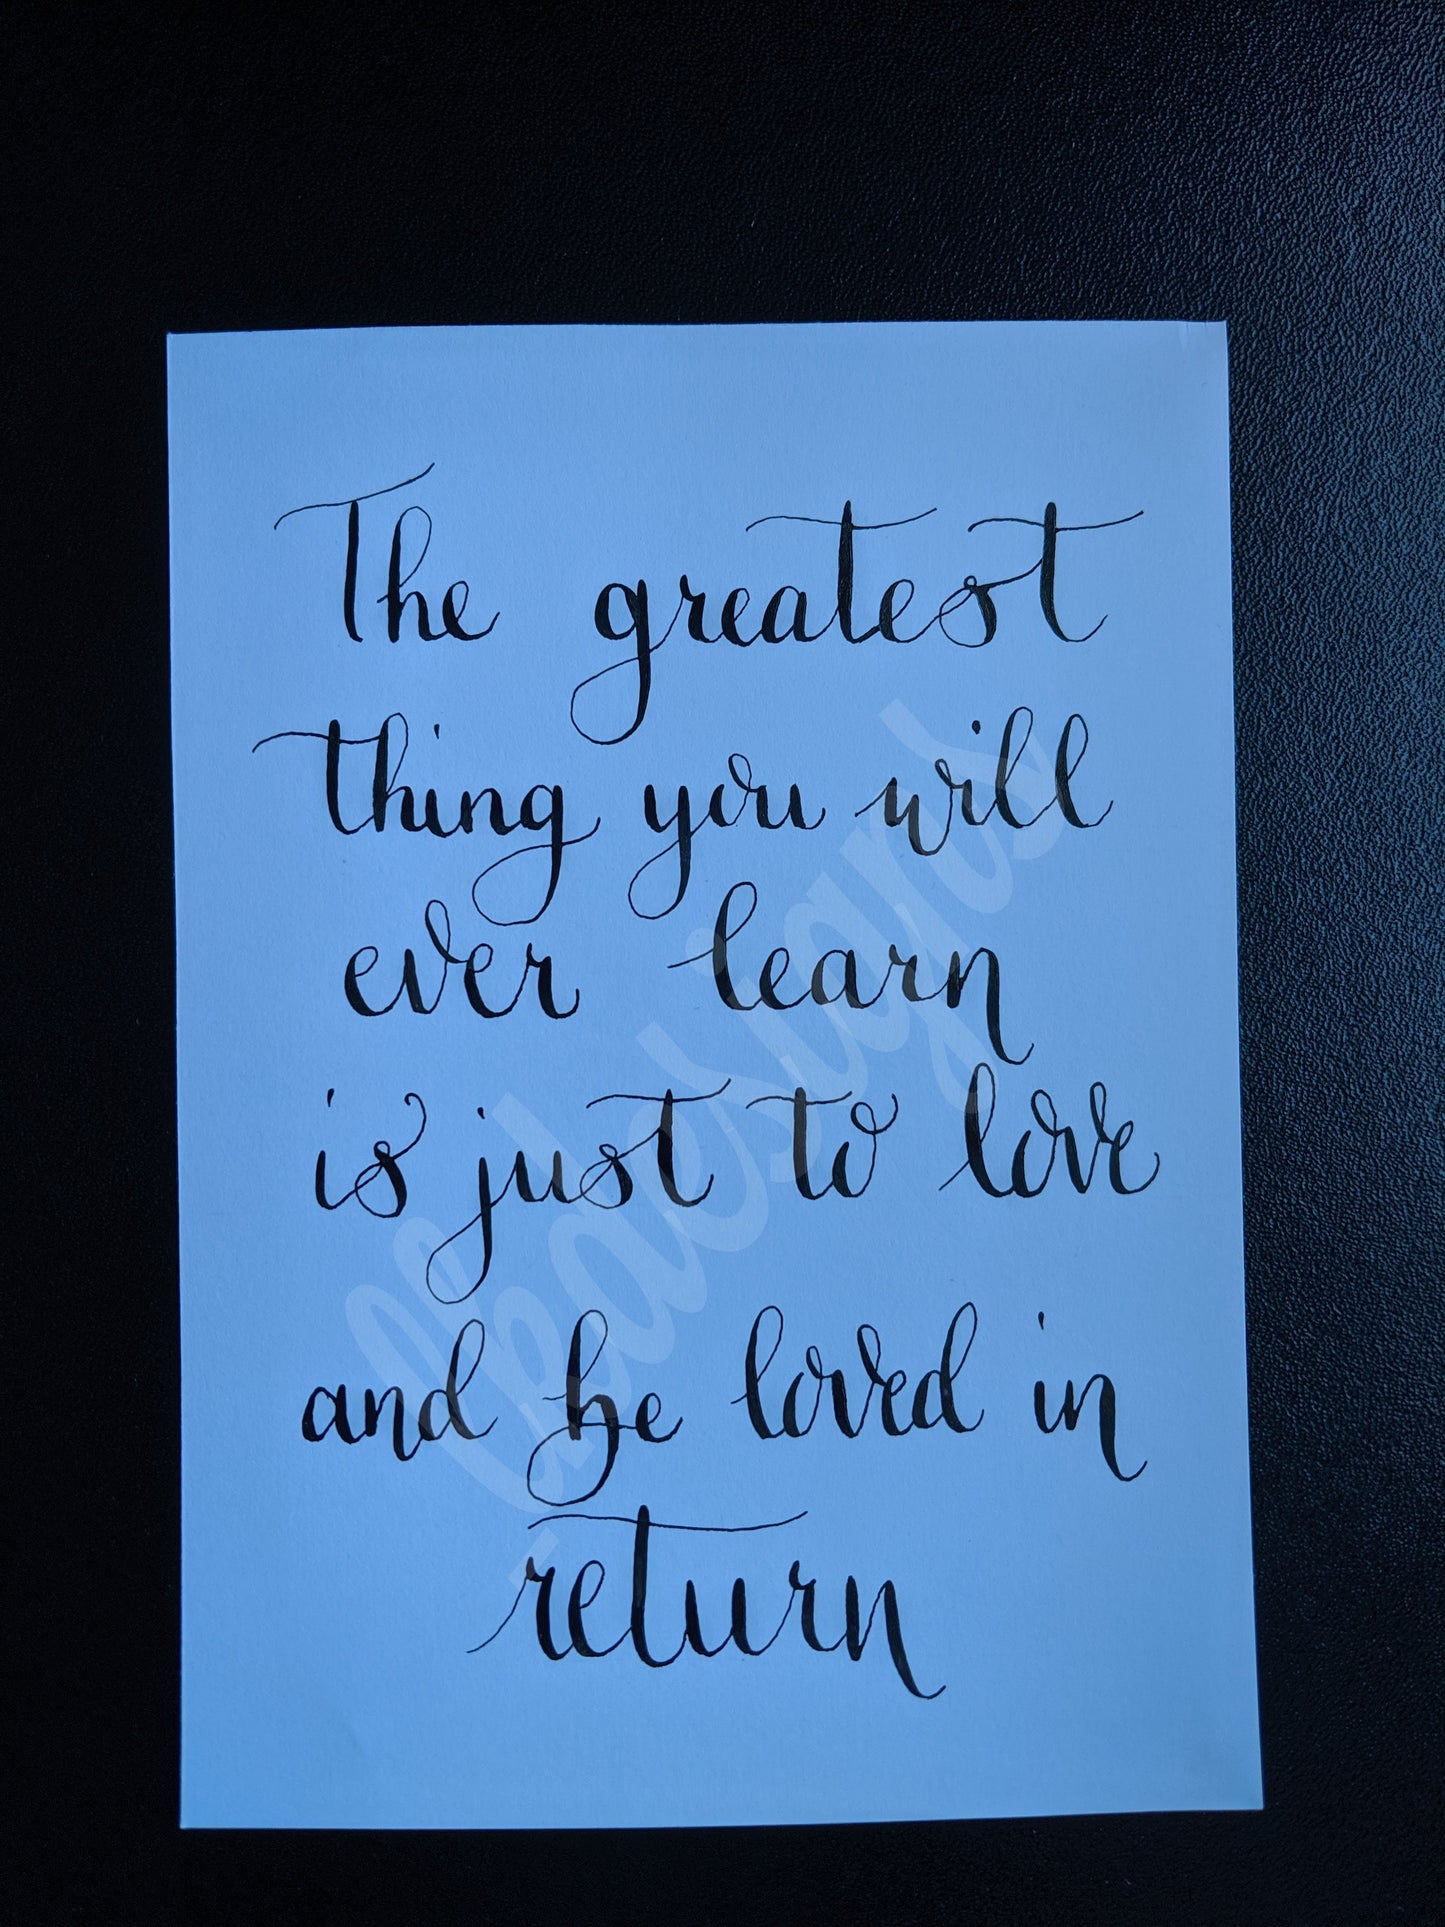 The greatest
thing you will
ever learn
is just to love
and be loved in
return